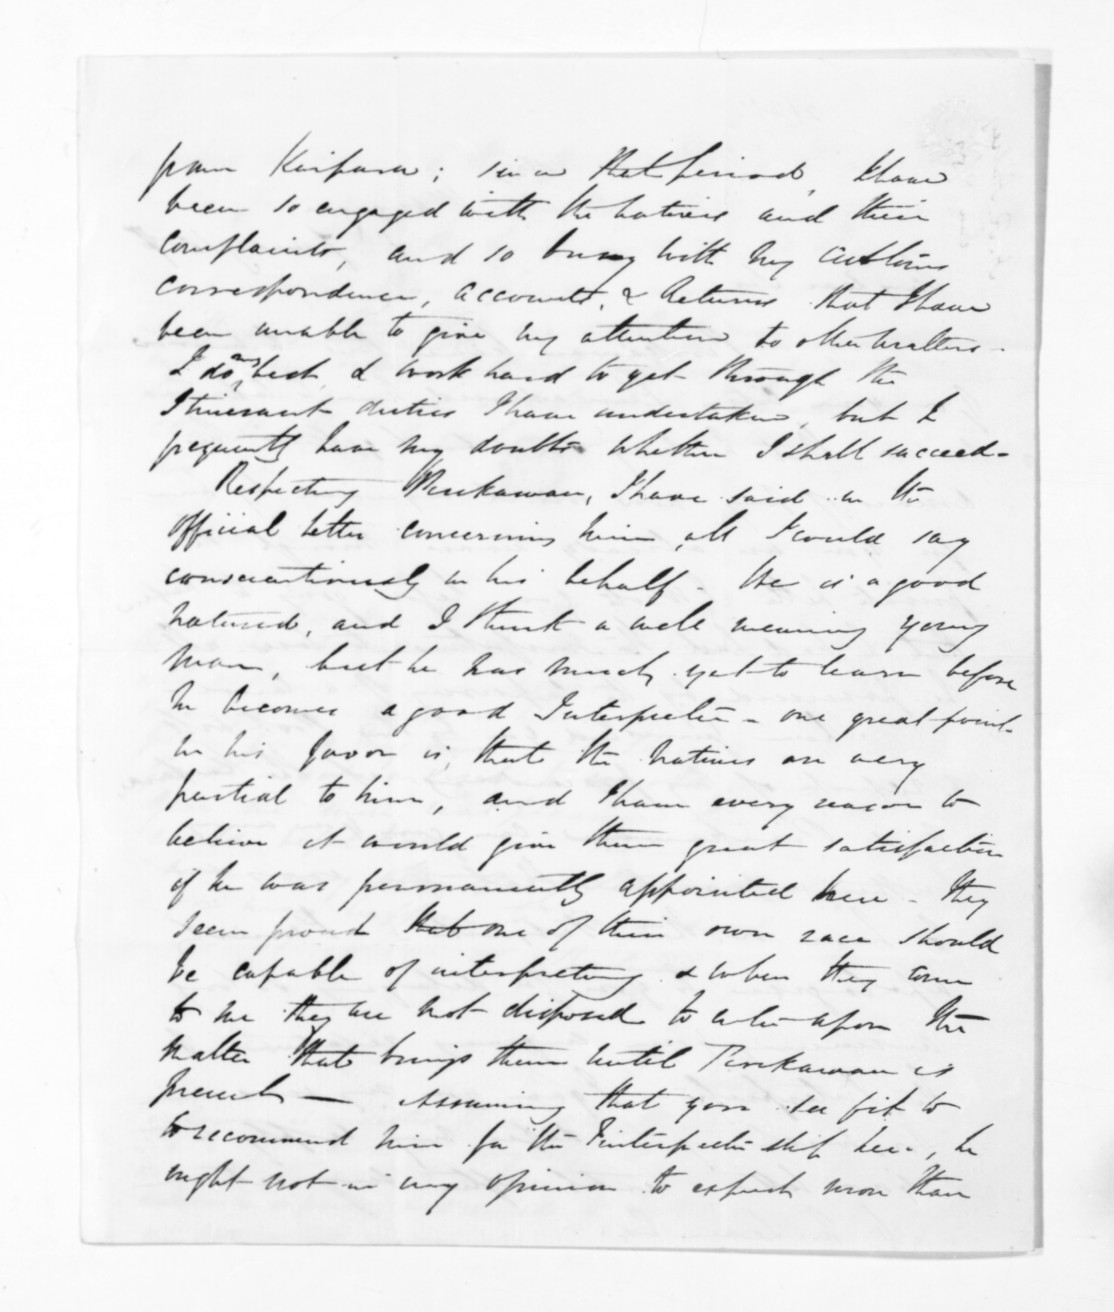 from Kaipara; since that period, I have
been so engaged with the natives and their
complaints, and so busy with my Customs
correspondence, accounts, & Returns that I have
been unable to give my attention to other matters -
I do my best & work hard to get through the
Itinerant duties I have undertaken, but I
frequently have my doubts whether I shall succeed -
Respecting I have said in the
official letter concerning him, all I could say
conscientiously in his behalf. He is a good
natured, and I think a well meaning young
man, but he has much yet to learn before
he becomes a good Interpreter - one great point
in his favor is, that the natives are very
partial to him, and I have every reason to
believe it would give them great satisfaction
if he was permanently appointed here - they
seem proud that one of their own race should
be capable of interpreting & when they come
to me they are not disposed to enter upon the
matter that brings them until is
present - Assuming that you see fit to
to recommend him for the Interpreter ship here, he
ought not in my opinion to expect more than